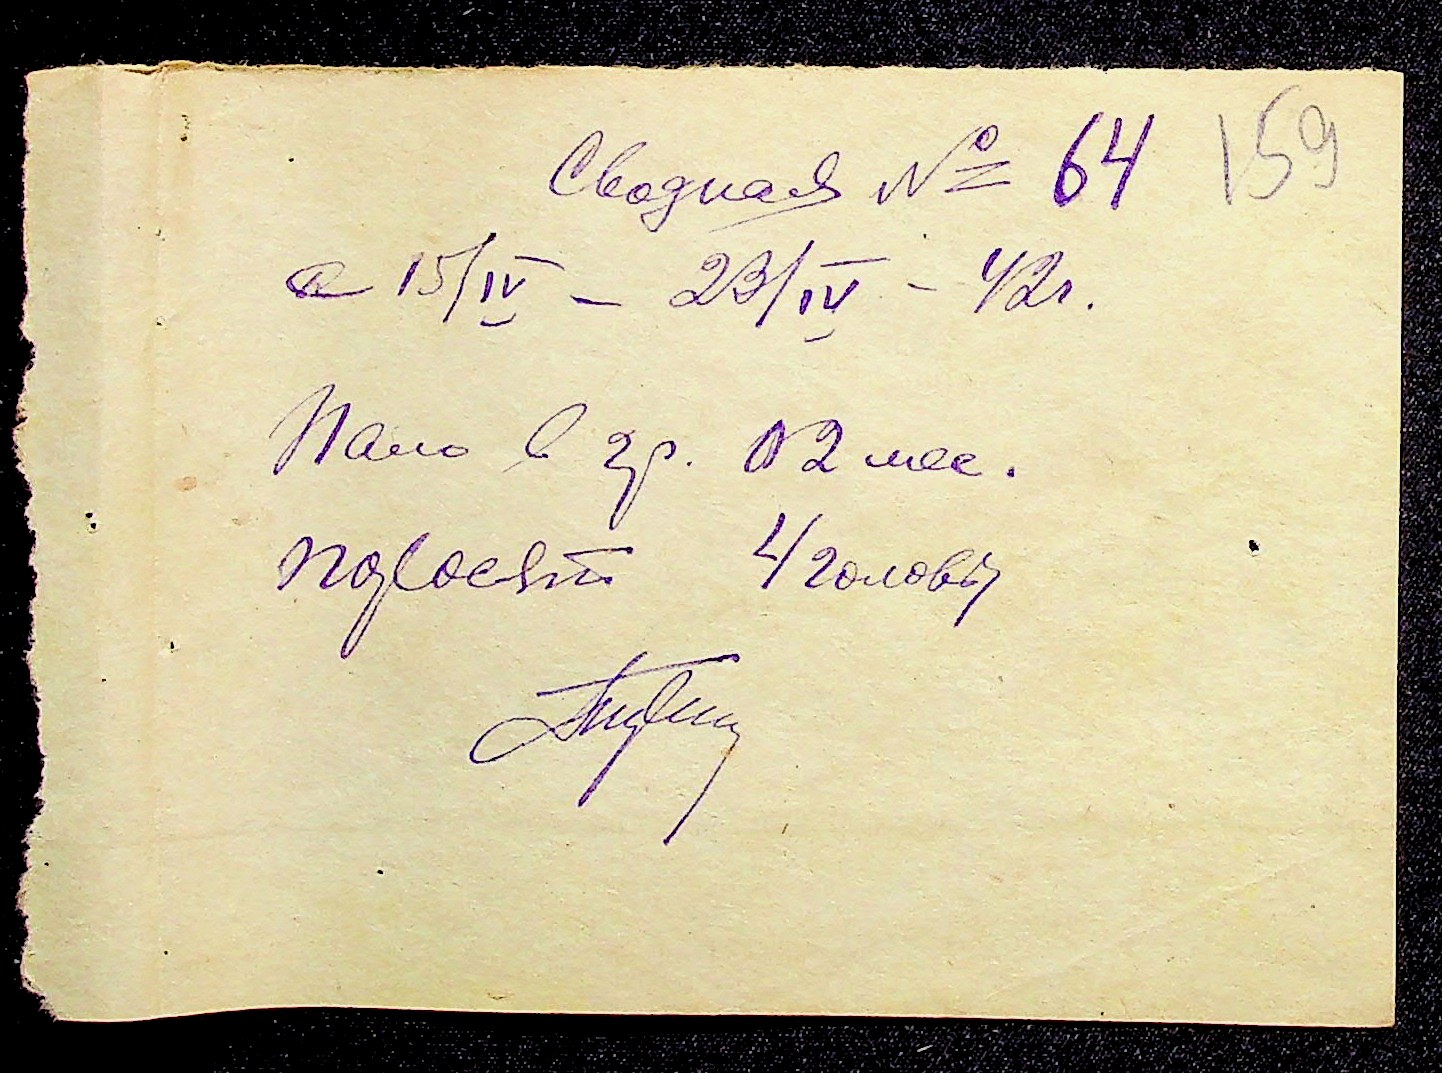 Сводная № 64 159
с 15/IV – 23/IV – 42г.
Пало в гр. 02 мес.
поросят 4 головы